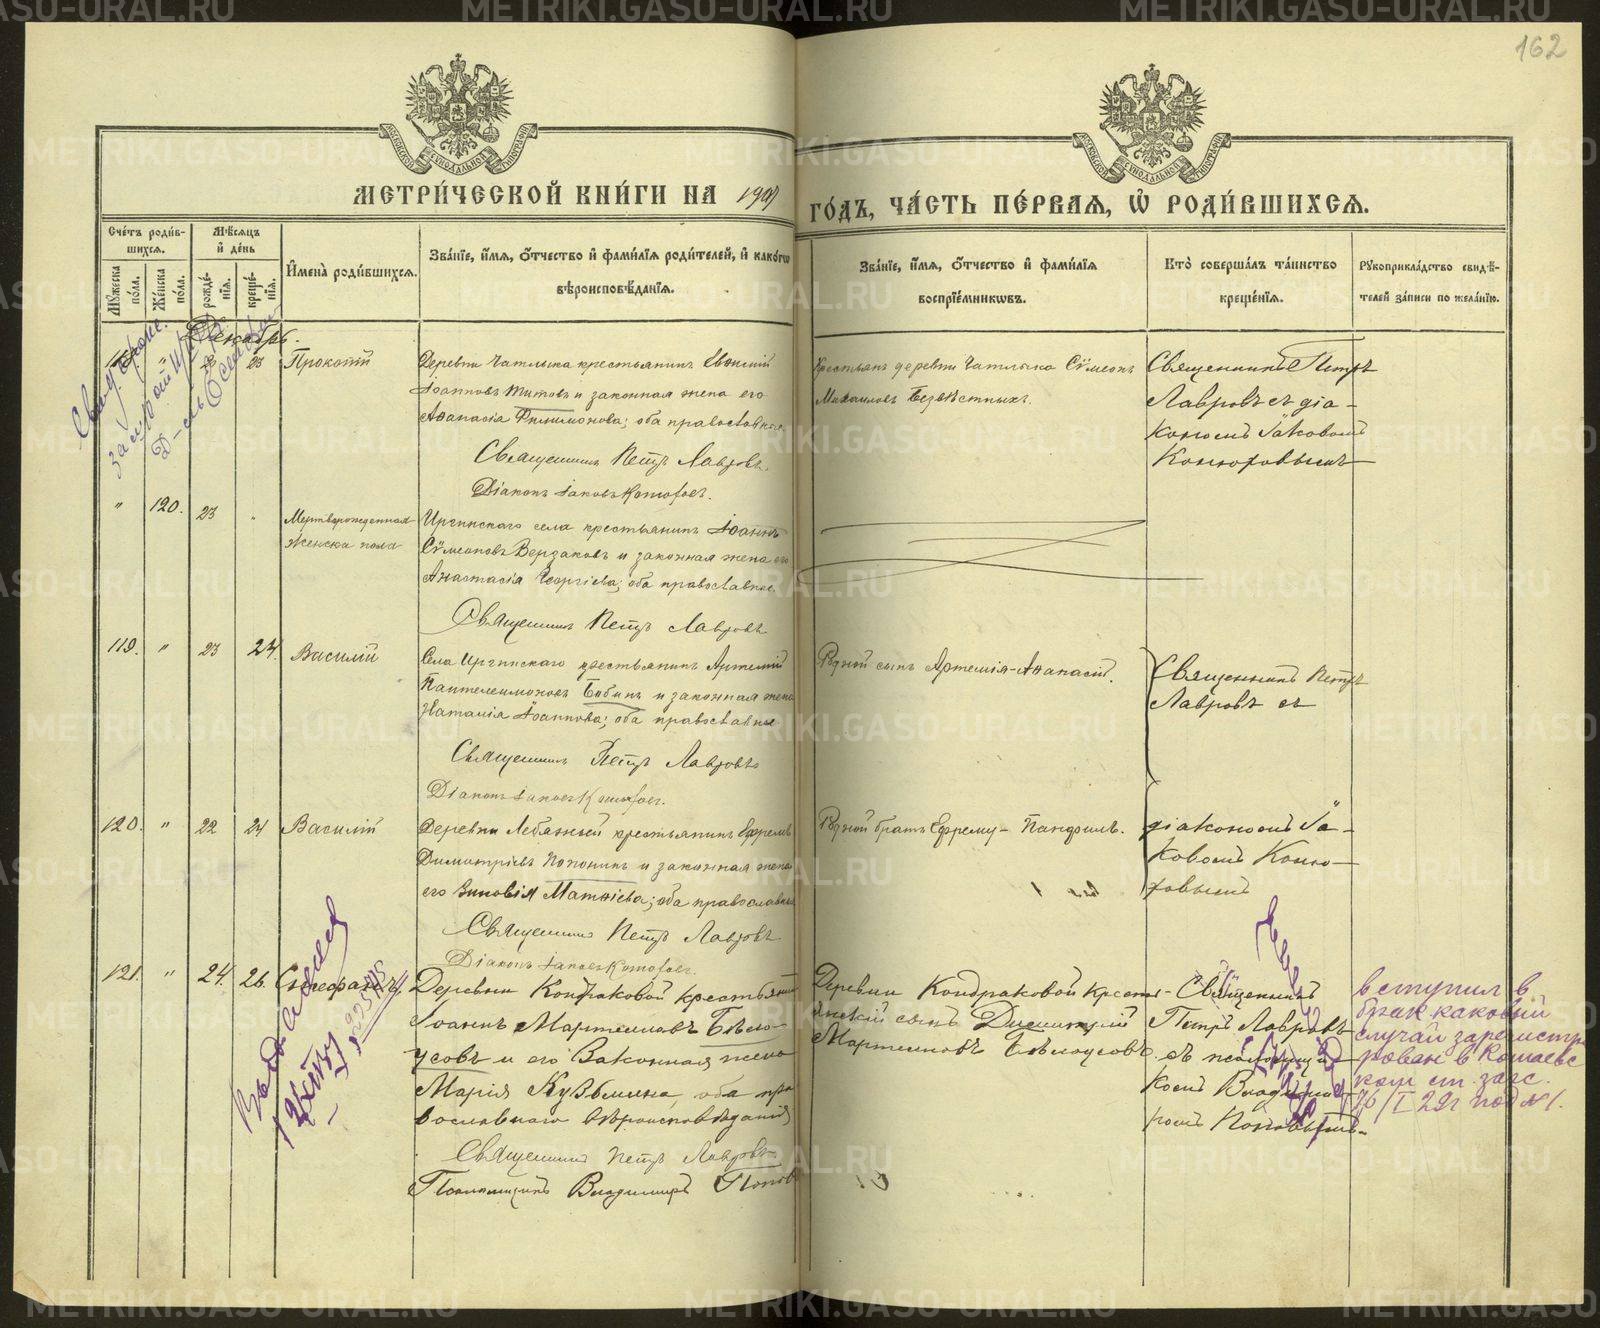 162
МОСКОВСКОЙ СѴНОДАЛЬНОЙ ТИПОГРАФІИ
МОСКОВСКОЙ СѴНОДАЛЬНОЙ ТИПОГРАФІИ
МЕТРИ́ЧЕСКОЙ КНИ́ГИ НА 1907 ГО́ДЪ, ЧА́СТЬ ПЕ́РВАЯ, Ѡ҆ РОДИ́ВШИХСЯ.
Сче́тъ роди́в-
шихся.
Мѣ́сяцъ
и҆ де́нь
Му́жеска
по́ла.
Же́нска
по́ла.
рожде́-
нїя.
креще́-
нїя.
И҆мена̀ роди́вшихся.
Зва́нїе, и҆́мя, ѻ҆́тчество и҆ фами́лїя роди́телей, и҆ како́гѡ
вѣроисповѣ́данїя.
Зва́нїе, и҆́мя, ѻ҆́тчество и҆ фами́лїя
воспрїе́мникѡвъ.
Кто̀ соверша́лъ та́инство
креще́нїя.
Рꙋкоприкла́дство свидѣ́-
телей за́писи по жела́нїю.
Декабрь.
" 23 Прокопій
Деревни Чатлыка крестьянинъ Евѳимій
Іоанновъ Титовъ и законная жена его
Аѳанасія Филимонова; оба православные
Священникъ Петръ Лавровъ.
Діаконъ Іаковъ Конюховъ.
Крестьянъ деревни Чатлыка Сѵмеонъ
Михаиловъ Безвѣстныхъ.
Священникъ Петръ
Лавровъ съ діа-
кономъ Іаковомъ
Конюховымъ
" 120. 23 "
Мертворожденная
женска пола
Иргинскаго села крестьянинъ Іоаннъ
Сѵмеоновъ Верзаковъ и законная жена его
Анастасія Георгіева; оба православные.
Священникъ Петръ Лавровъ
119. " 23 24. Василій
Села Иргинскаго крестьянинъ Артемій
Пантелеимоновъ Бабинъ и законная жена
Наталія Іоаннова; оба православные
Священникъ Петръ Лавровъ
Діаконъ Іаковъ Конюховъ.
Родной сынъ Артемія-Аѳанасій.
Священникъ Петръ
Лавровъ съ
120. " 22 24 Василій
Деревни Лебяжьей крестьянинъ Ефремъ
Димитріевъ Попонинъ и законная жена
его Зиновія Матѳіева; оба православные
Священникъ Петръ Лавровъ
Діаконъ Іаковъ Конюховъ.
Родной братъ Ефрему- Панфилъ.
діакономъ Іа-
ковомъ Коню-
ховымъ
121. " 24. 26. Стефанъ
Деревни Кондраковой крестьянинъ
Іоаннъ Мартемиловъ Бѣло-
усовъ и его законная жена
Марія Кузьмина, оба пра
вославнаго вѣроисповѣданія
Священникъ Петръ Лавровъ
Псаломщикъ Владиміръ Поповъ
Деревни Кондраковой крестья-
янскій сынъ Димитрій
Мартемиловъ Бѣлоусовъ.
Священникъ
Петръ Лавровъ
съ псаломщи-
комъ Владимі-
ромъ Поповымъ-
вступил в
брак каковый
случай зарегистри
рован в
ст. загс.
26/I 29г под N 1.
METRIKI.GASO-URAL.RU